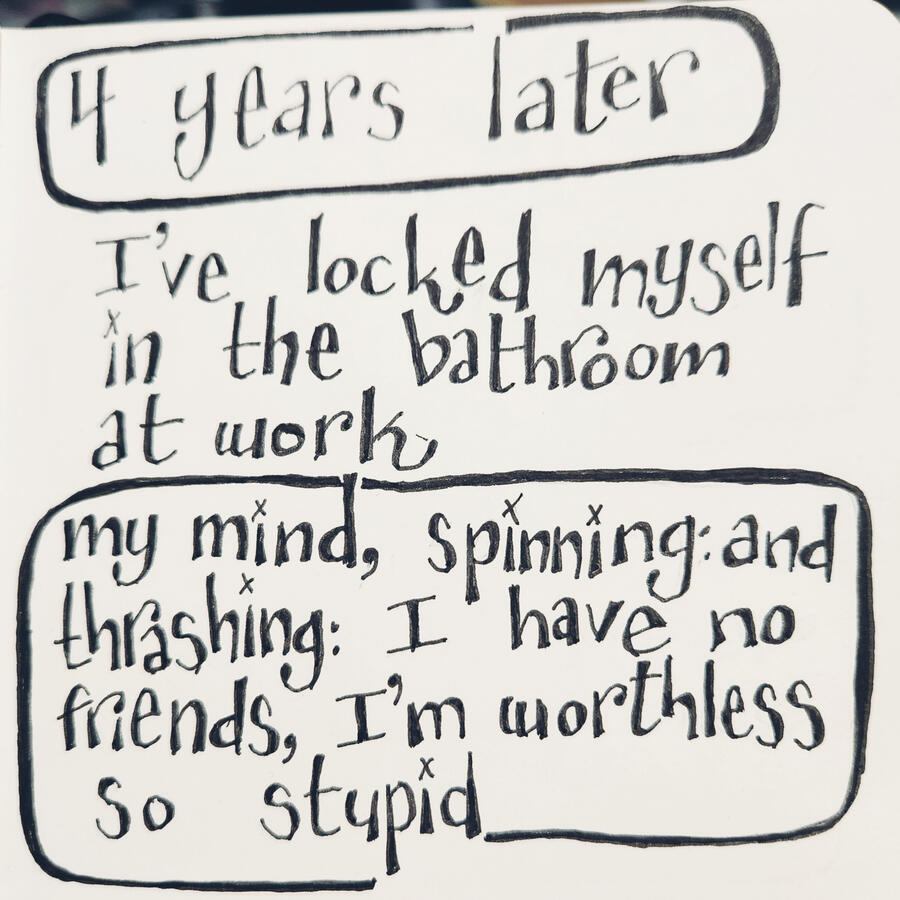 4 years later
I've locked myself
in the bathroom
at work
my mind, spinning: and
thrashing: I have no
friends, I'm worthless
so stupid